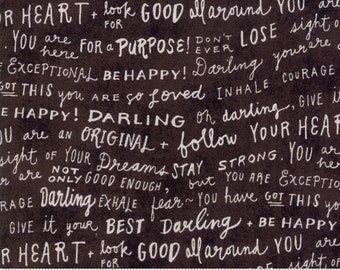 R HEART + look FOR GOOD all around YOU are
YOU are here FOR a PURPOSE! DON'T EVER LOSE sight of
E EXCEPTIONAL BE HAPPY! Darling you are a
GOT THIS you ARE so Loved INHALE COURAGE
E HAPPY! DARLING oh darling, GIVE i
OU are AN ORIGINAL + follow YOUR HEAR
sight OF YOUR Dreams STAY STRONG. YOU
are NOT ONLY GOOD ENOUGH, but YOU ARE EXCEPTIO
RAGE Darling EXHALE fear~ YOU HAVE GOT THIS you
GIVE it your BEST Darling + BE HAPPY
R HEART + look FOR GOOD all around YOU are